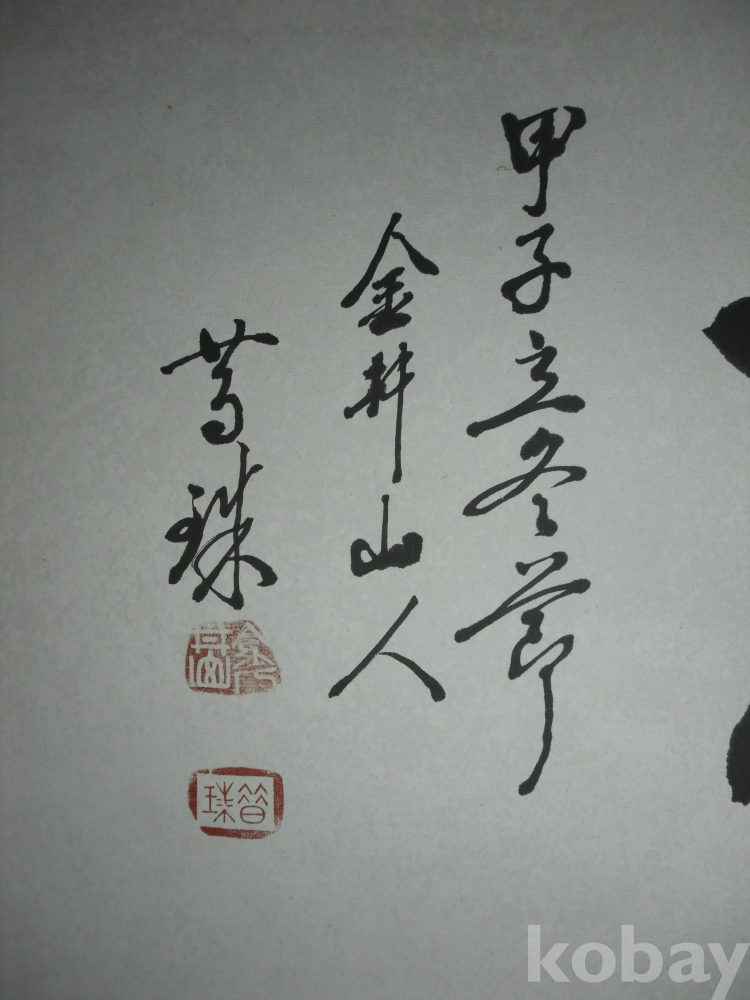 甲子立冬節
金井山人
珠
kobay